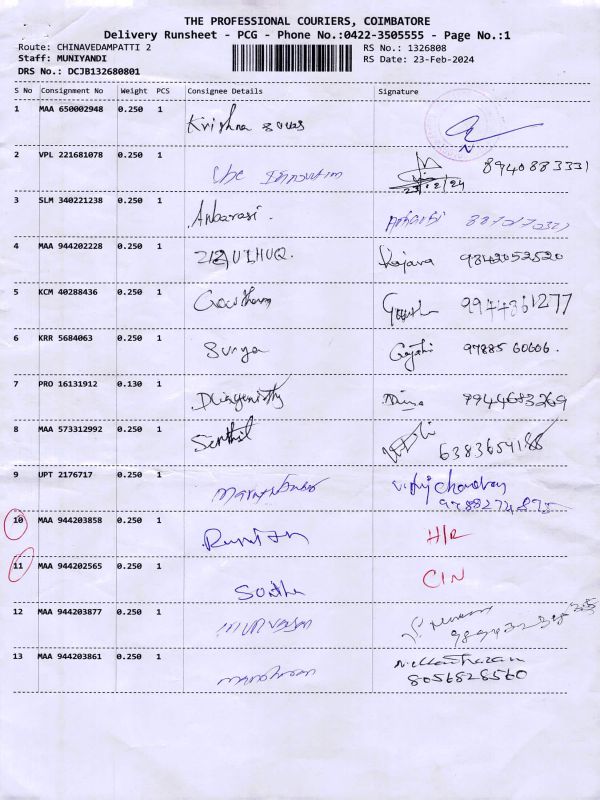 THE PROFESSIONAL COURIERS, COIMBATORE
Delivery Runsheet - PCG - Phone No.:0422-3505555 - Page No.:1
Route: CHINAVEDAMPATTI 2 RS No.: 1326808
Staff: MUNIYANDI RS Date: 23-Feb-2024
DRS No.: DCJB132680801
S No Consignment No Weight PCS Consignee Details Signature
1 MAA 650002948 0.250 1 Krishna
2 VPL 221681078 0.250 1 8940883331
23/2/24
3 SLM 340221238 0.250 1 Anbarasi.
4 MAA 944202228 0.250 1 Rajava 9842052520
5 KCM 40288436 0.250 1 Gowtham 9944361277
6 KRR 5684063 0.250 1 Surya Gayathi 97885 60606.
7 PRO 16131912 0.130 1 7944683269
8 MAA 573312992 0.250 1 Senthil
9 UPT 2176717 0.250 1
10 MAA 944203858 0.250 1 H/R
11 MAA 944202565 0.250 1 C/N
12 MAA 944203877 0.250 1
13 MAA 944203861 0.250 1
8056828560